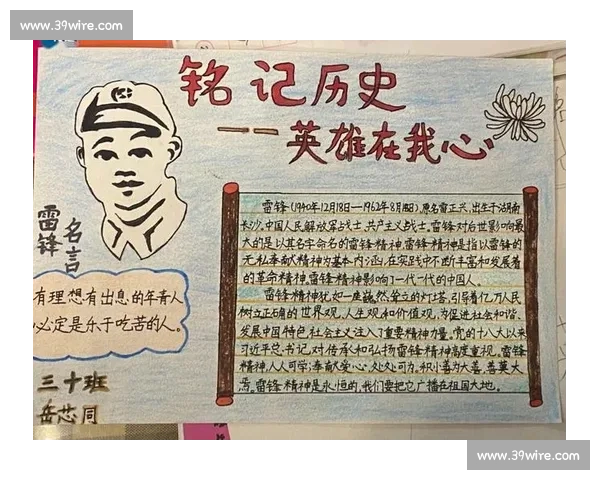 www.39wire.com
铭记历史
——英雄在我心
雷锋(1940年12月18日—1962年8月15日),原名雷正兴,出生于湖南
长沙,中国人民解放军战士,共产主义战士。雷锋对后世影响最
大的是以其名字命名的雷锋精神,雷锋精神是指以雷锋的
无私奉献精神为基本内涵,在实践中不断丰富和发展着
的革命精神。雷锋精神影响了一代一代的中国人。
雷锋精神犹如一座巍然耸立的灯塔,引导着亿万人民
树立正确的世界观,人生观和价值观,为促进社会和谐、
发展中国特色社会主义注入了重要精神力量。党的十八大以来
习近平总书记对传承和弘扬雷锋精神高度重视。雷锋
精神,人人可学;奉献爱心,处处可为。积小善为大善,善莫大
焉。雷锋精神是永恒的,我们要把它广播在祖国大地。
雷锋
名言
有理想有出息的年青人
必定是乐于吃苦的人。
三十班
岳芯同
www.39wire.com